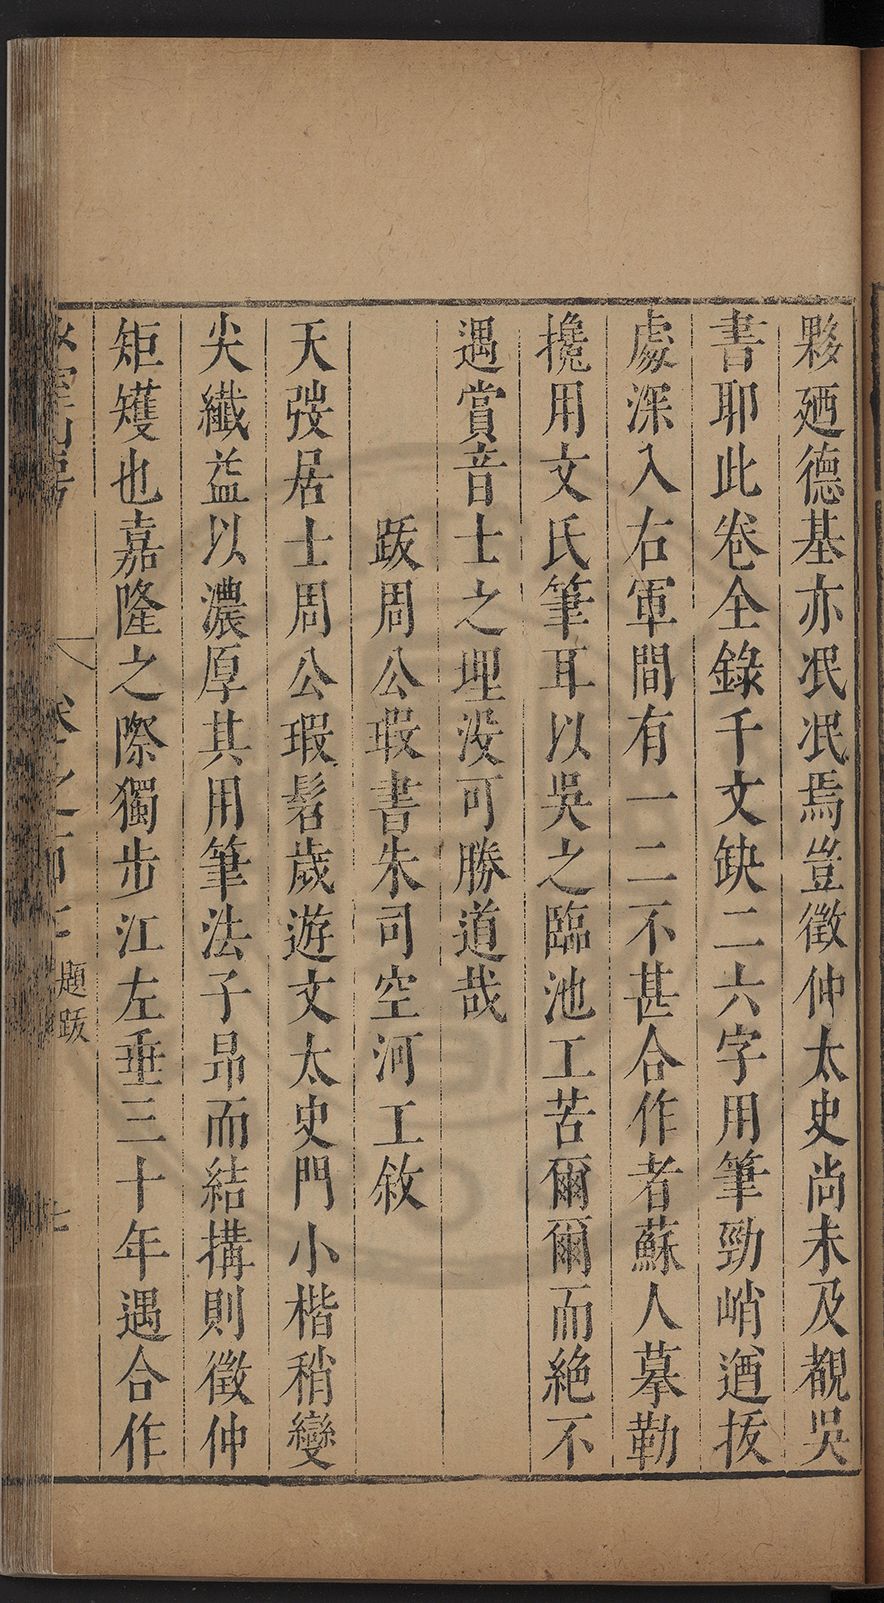 夥廼德基亦泯泯焉豈徵仲太史尚未及覩吳
書耶此卷全錄千文缺二六字用筆勁峭遒拔
處深入右軍間有一二不甚合作者蘇人摹勒
攙用文氏筆耳以吳之臨池工苦爾爾而絶不
遇賞音士之埋沒可勝道哉
跋周公瑕書朱司空河工敘
天弢居士周公瑕髫歲遊文太史門小楷稍變
尖纖益以濃厚其用筆法子昻而結搆則徵仲
矩矱也嘉隆之際獨步江左垂三十年遇合作
題跋